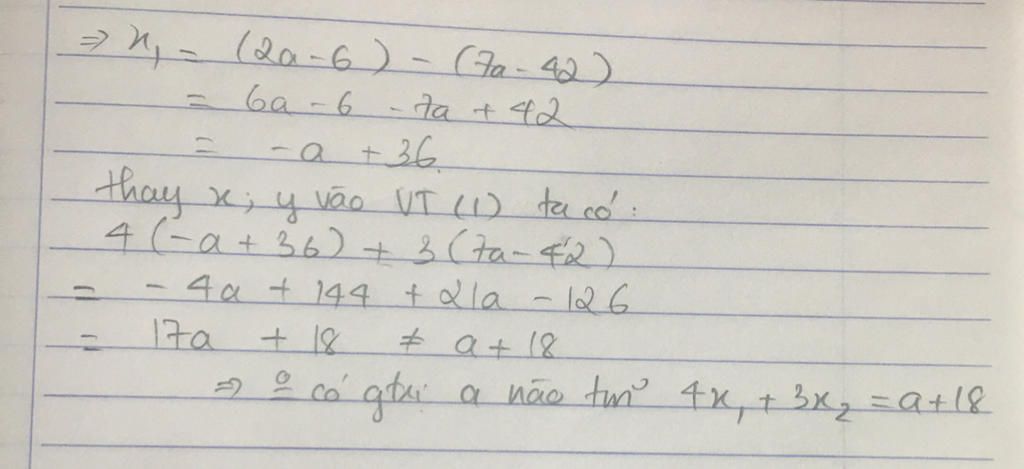 ⇒ x₁ = (2a - 6) - (7a - 42)
= 6a - 6 - 7a + 42
= -a + 36.
thay x; y vào VT (1) ta có:
4(-a + 36) + 3(7a - 42)
= - 4a + 144 + 21a - 126
= 17a + 18 ≠ a + 18
⇒ có gtrị a nào tm 4x₁ + 3x₂ = a + 18